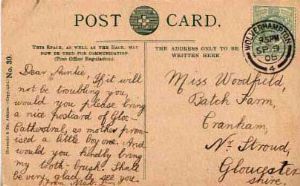 POST CARD.
THIS SPACE, AS WELL AS THE BACK, MAY
NOW BE USED FOR COMMUNICATION.
(Post Office Regulation).
THE ADDRESS ONLY TO BE
WRITTEN HERE.
WOLVERHAMPTON
SP 9
05
4
No. 30.
Dear Auntie, If it will
not be troubling you,
would you please bring
a nice postcard of Glos-
Cathedral, as mother prom-
ised a little boy one. And
would you kindly bring
my tooth-brush. Shall
be very glad to see you
from
Miss Woodfield,
Batch Farm,
Cranham,
Nr. Stroud,
Gloucester
shire.